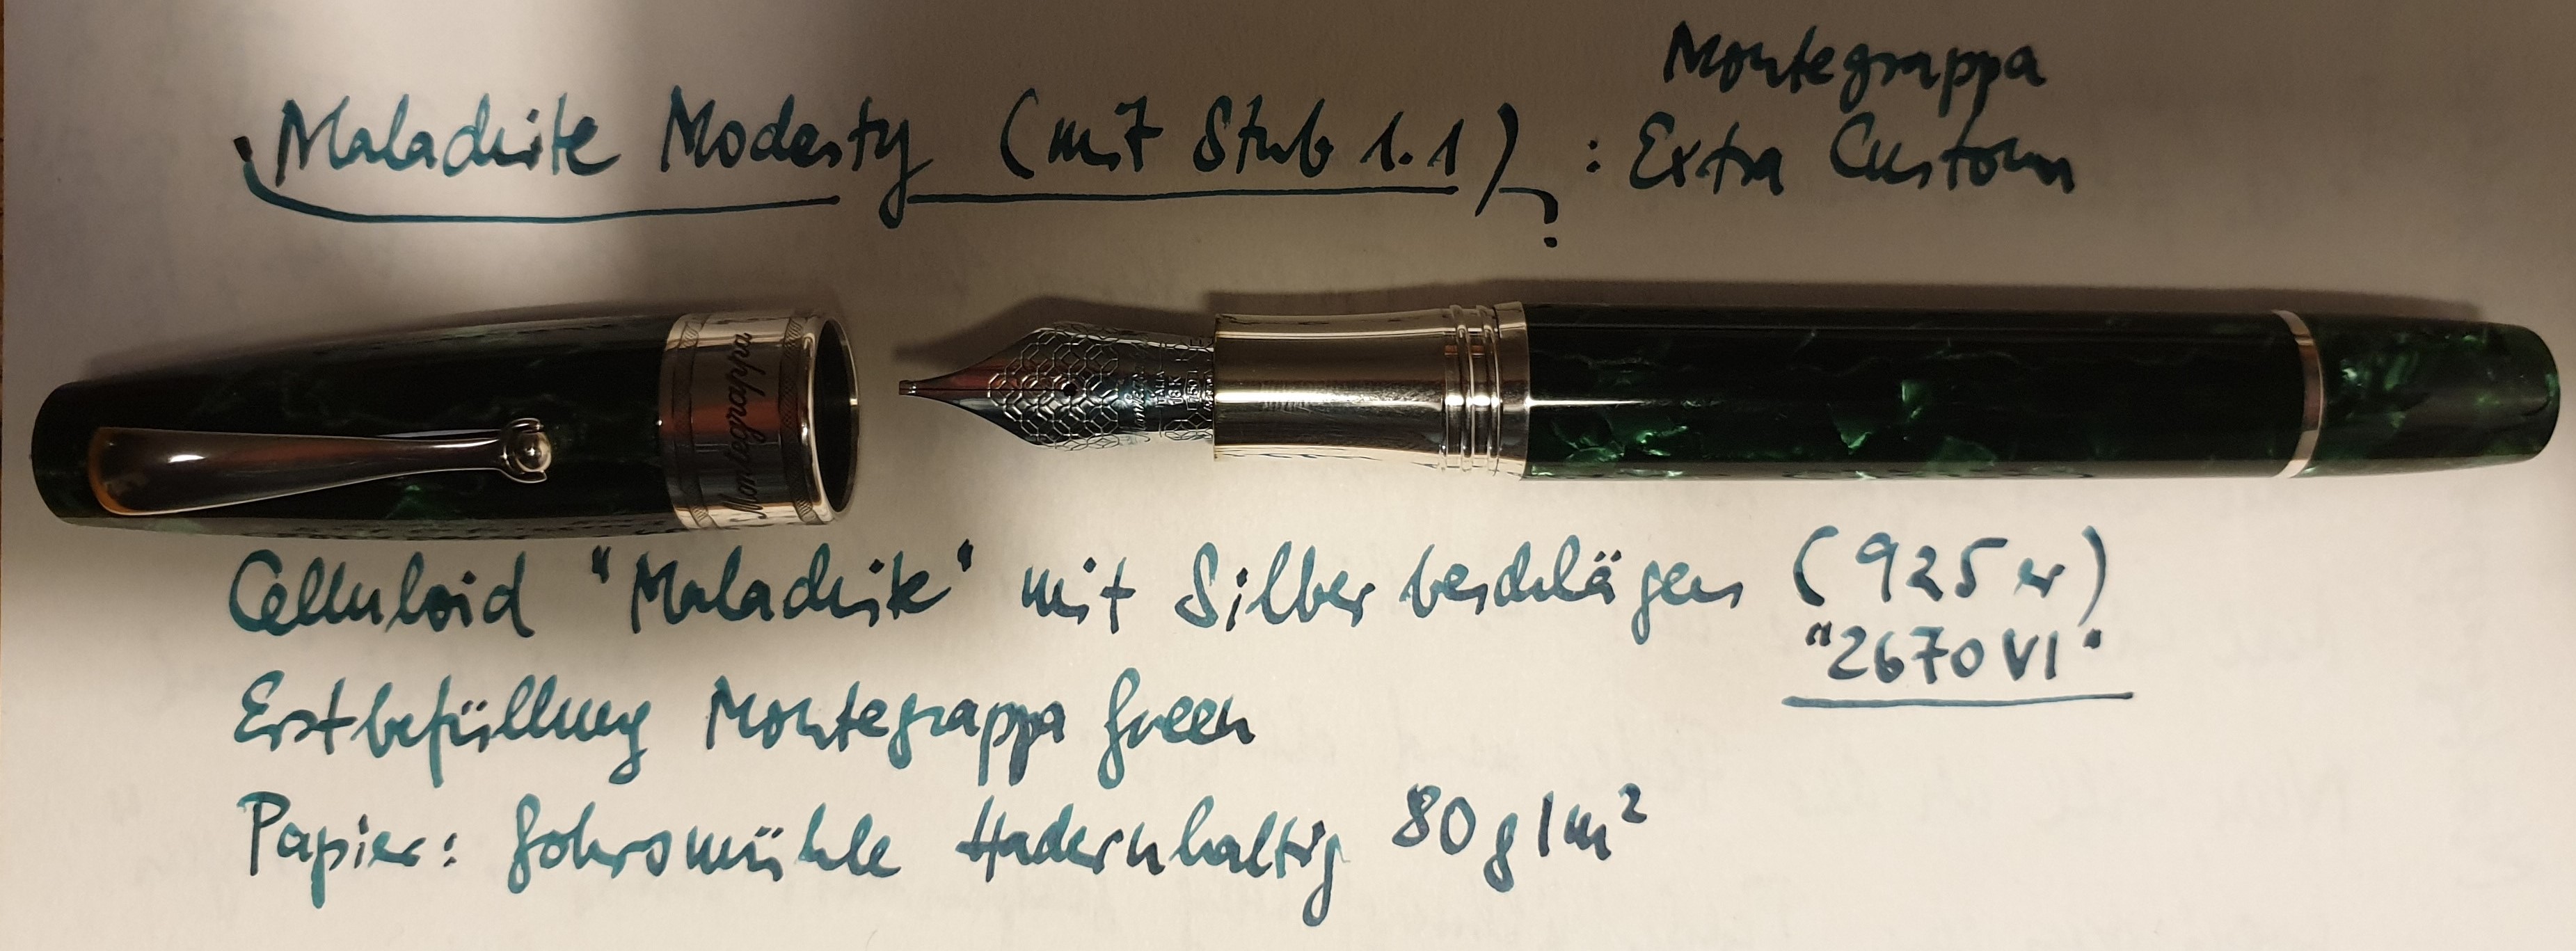 Malachite Modesty (mit Stub 1.1) : Montegrappa
Extra Custom
Montegrappa
ITALIA
18K
Celluloid "Malachite" mit Silberbeschlägen (925er)
"2670VI"
Erstbefüllung Montegrappa Green
Papier: Gohrsmühle Hadernhaltig 80g/m²